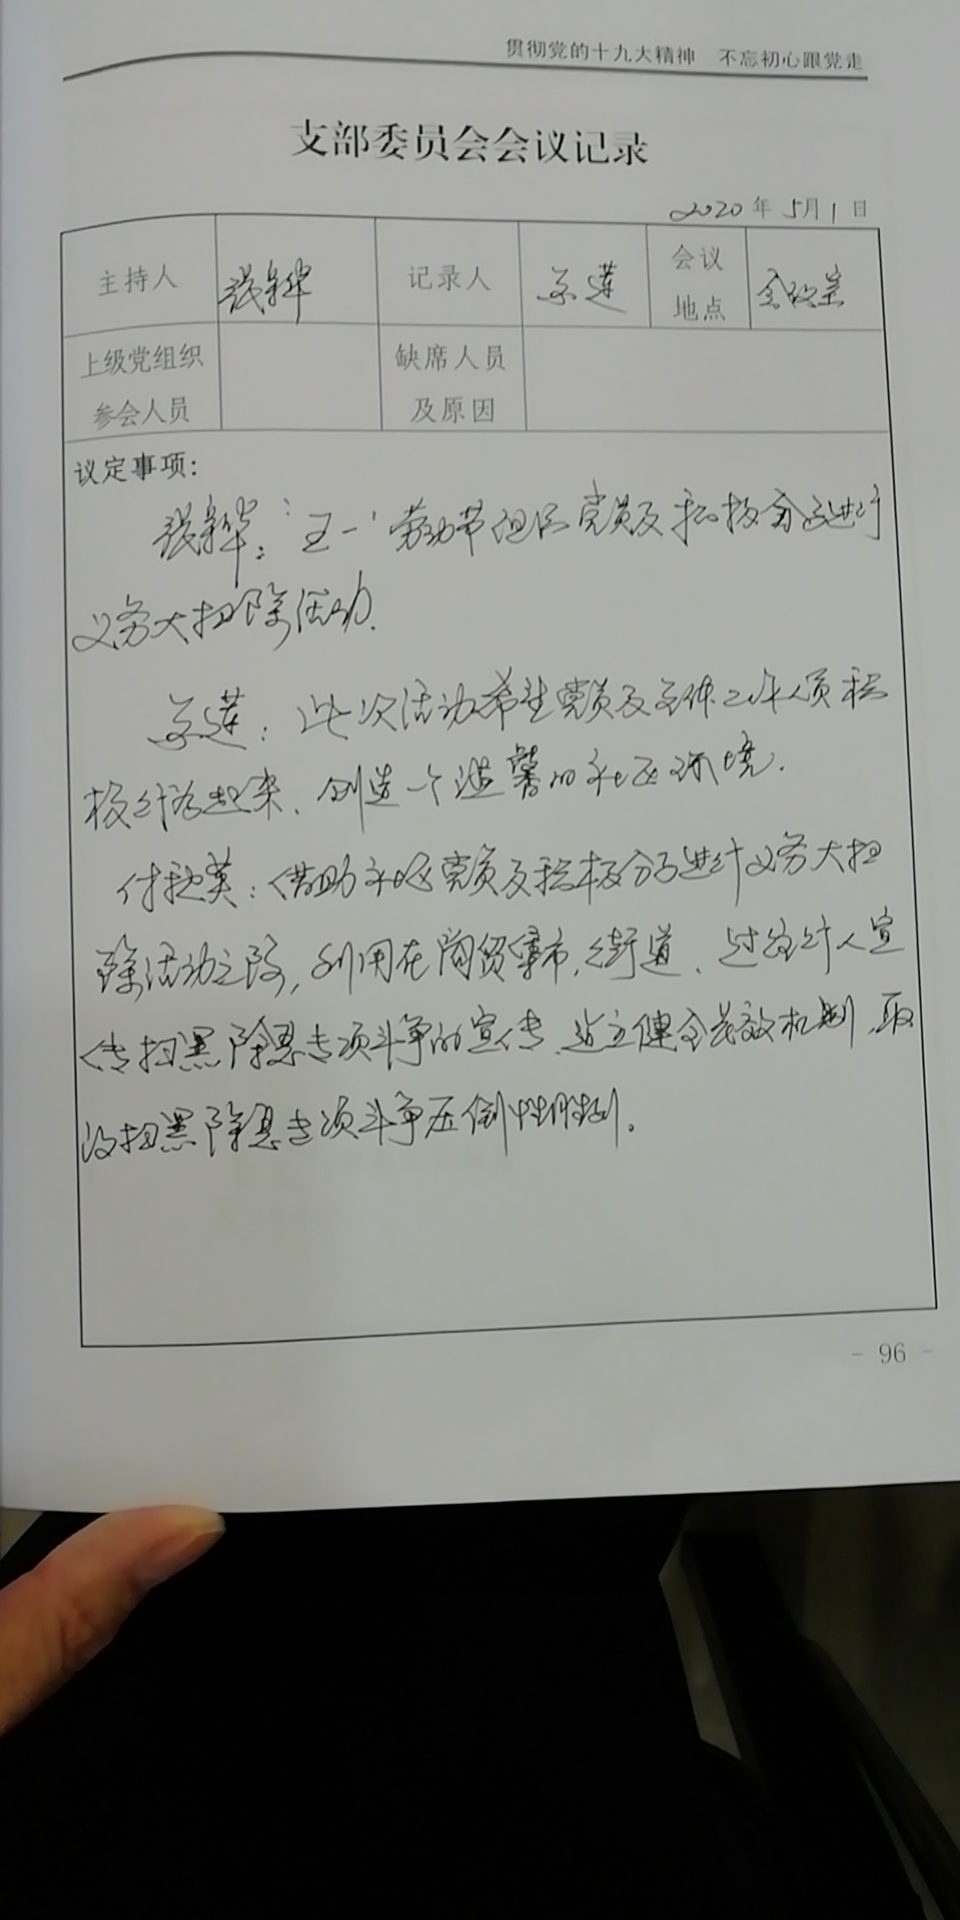 贯彻党的十九大精神 不忘初心跟党走
支部委员会会议记录
2020年5月1日
主持人 张新华 记录人 会议地点 会议室
上级党组织参会人员 缺席人员及原因
议定事项：
张新华："五一"劳动节组织党员及积极分子进行
义务大扫除活动.
：此次活动希望党员及全体工作人员积
极行动起来、创造一个温馨的社区环境.
付艳英：借助社区党员及积极分子进行义务大扫
除活动之际,利用在商贸集市,街道、过往行人宣
传扫黑除恶专项斗争的宣传,建立健全长效机制,取
得扫黑除恶专项斗争压倒性胜利。
- 96 -